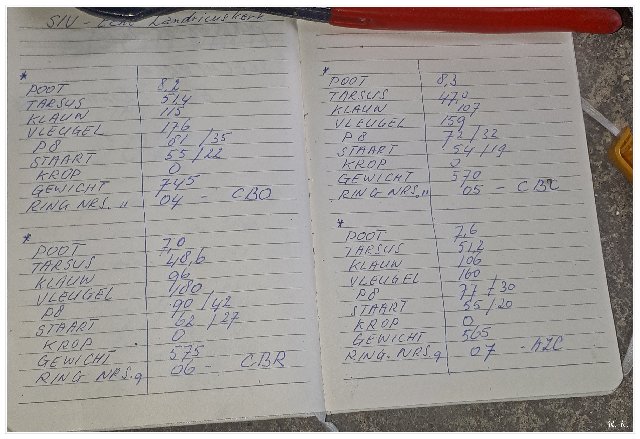 SIU - Echt Landricuskerk
*
POOT 8,2
TARSUS 51,4
KLAUW 115
VLEUGEL 176
P8 81 / 35
STAART 55 / 22
KROP 0
GEWICHT 745
RING NRS. " 04 - CBO
*
POOT 7,0
TARSUS 48,6
KLAUW 96
VLEUGEL 180
P8 90 / 42
STAART 62 / 27
KROP 0
GEWICHT 575
RING NRS. 06 - CBR
*
POOT 8,3
TARSUS 47,0
KLAUW 107
VLEUGEL 159
P8 73 / 32
STAART 54 / 19
KROP 0
GEWICHT 570
RING NRS. " 05 - CBC
*
POOT 7,6
TARSUS 51,2
KLAUW 106
VLEUGEL 160
P8 77 / 30
STAART 55 / 20
KROP 0
GEWICHT 565
RING. NRS. 07
K. K.